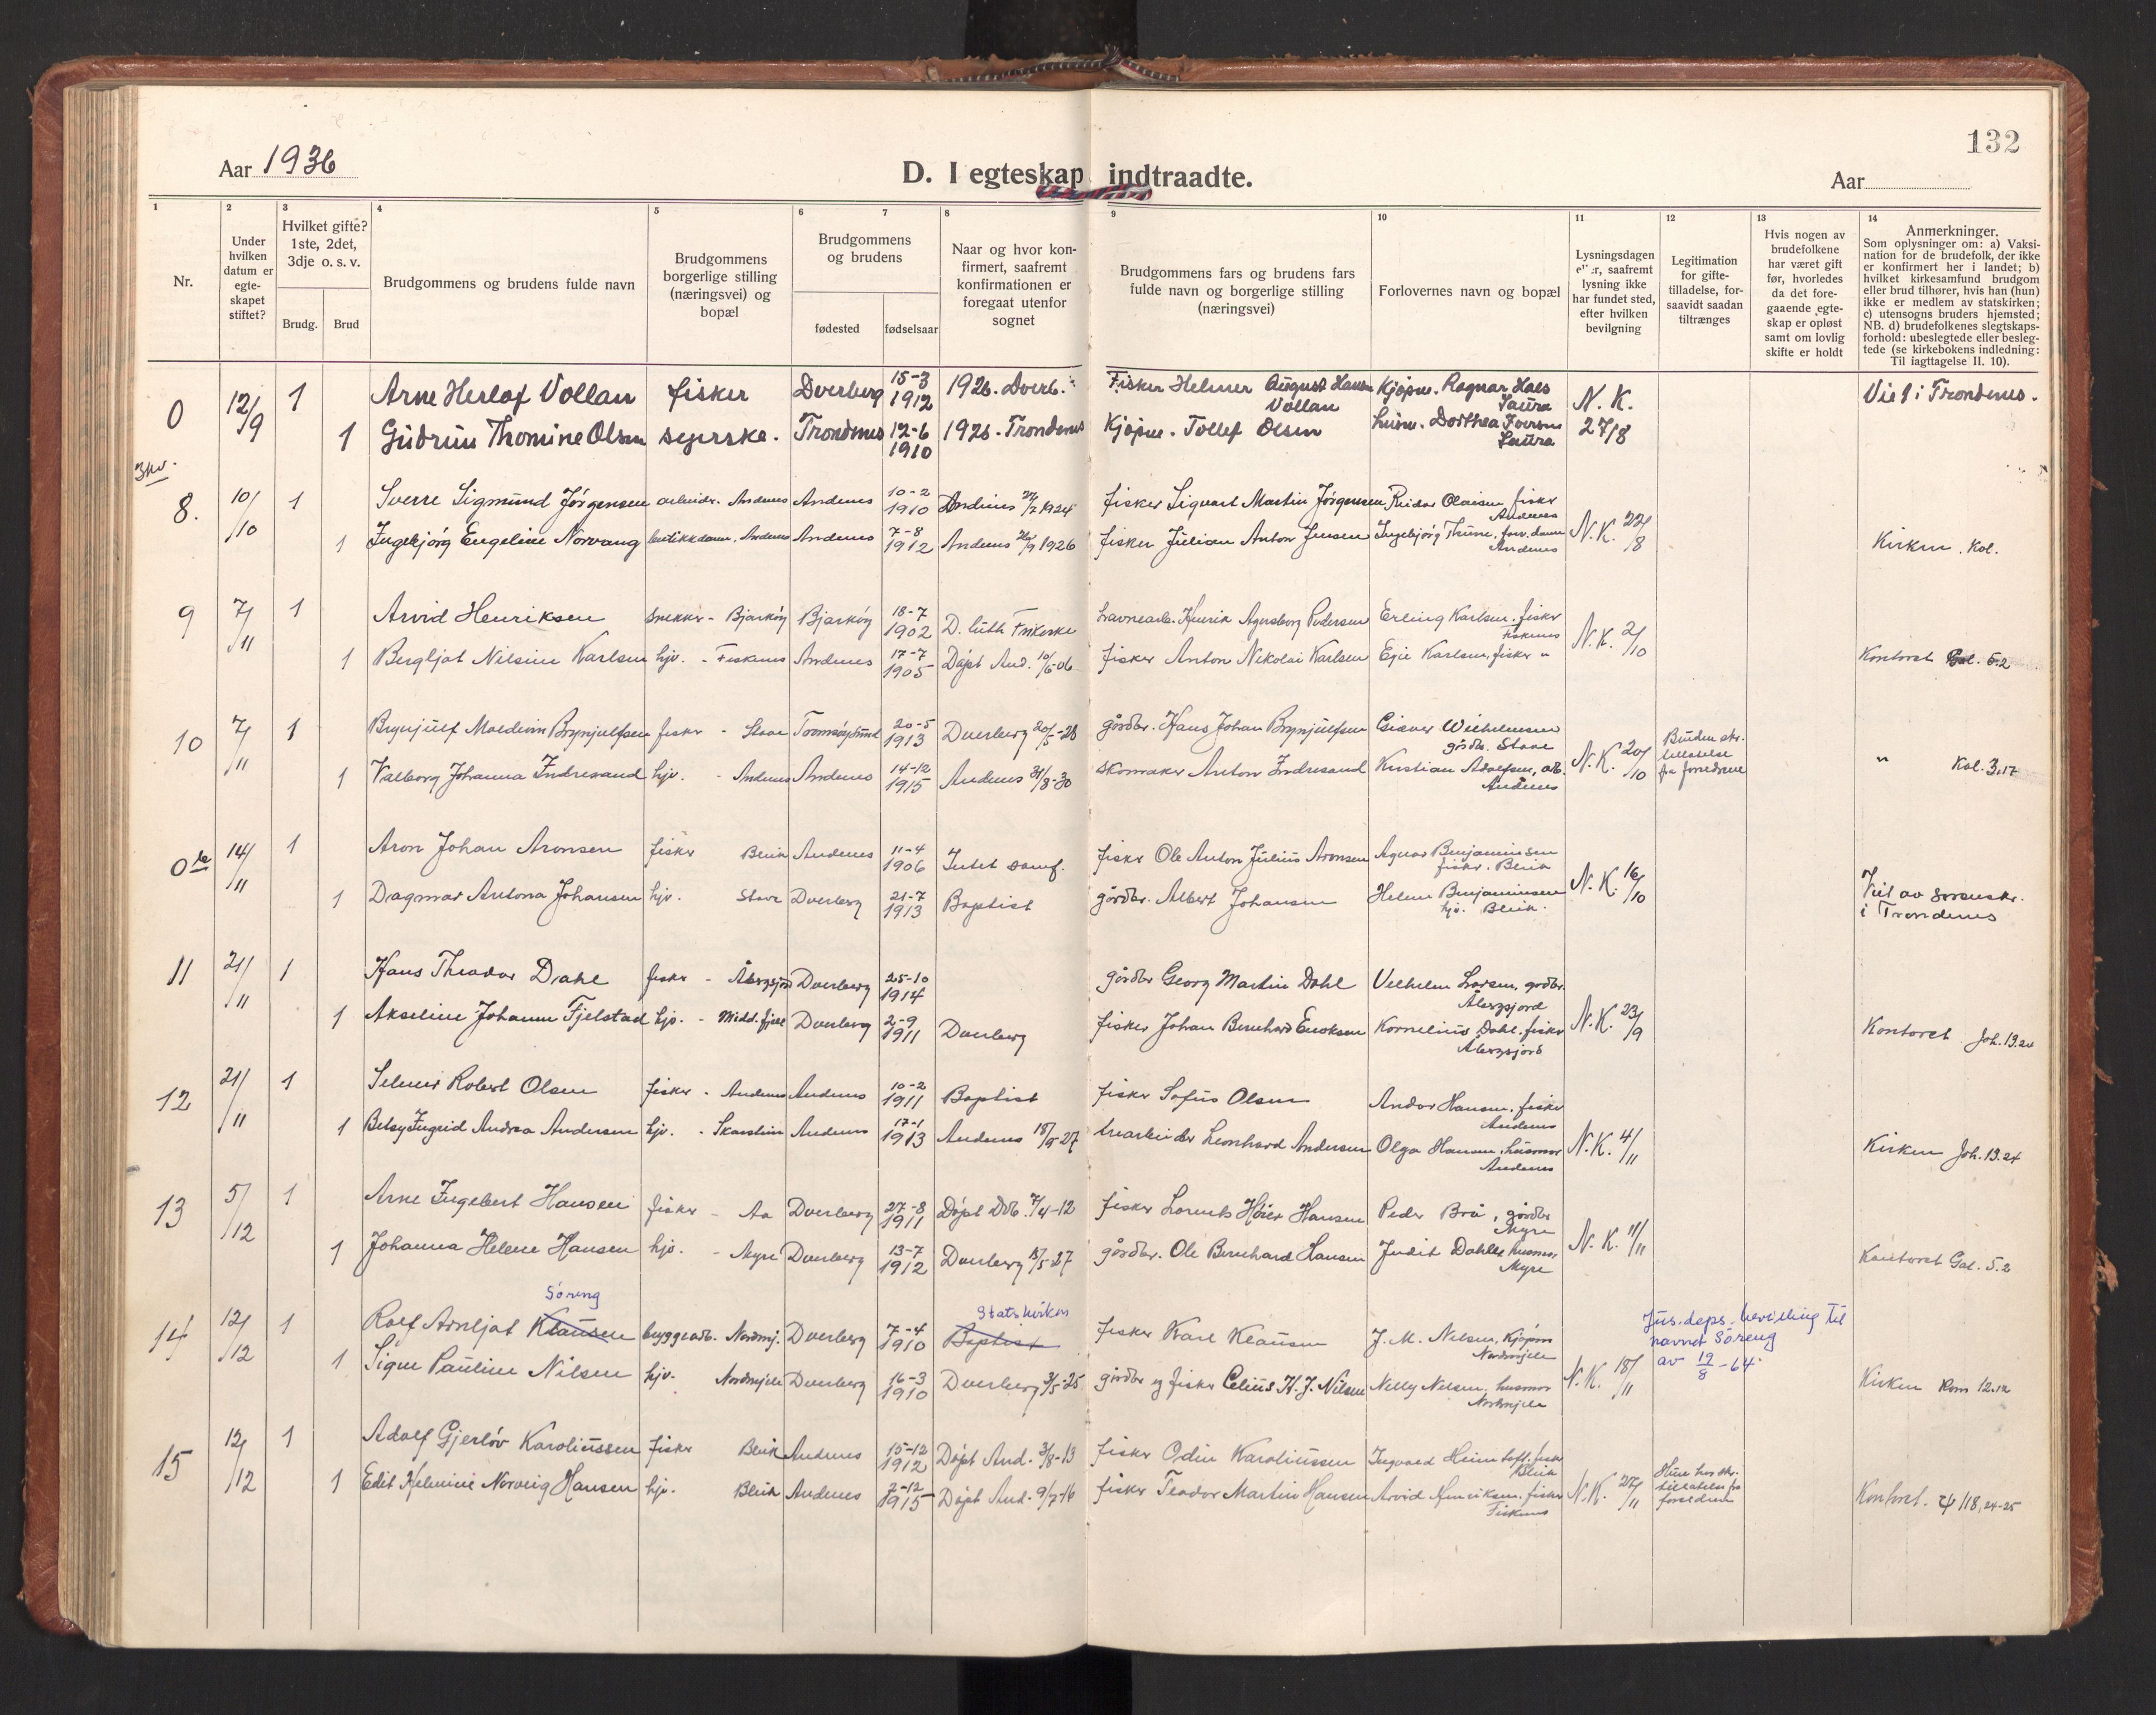 132
Aar 1936
D. I egteskap indtraadte.
Aar
1 2 3 4 5 6 7 8 9 10 11 12 13 14
Nr.
Under hvilken datum er egte-skapet stiftet?
Hvilket gifte? 1ste, 2det, 3dje o. s. v.
Brudg. Brud
Brudgommens og brudens fulde navn
Brudgommens borgerlige stilling (næringsvei) og bopæl
Brudgommens og brudens
fødested fødselsaar
Naar og hvor kon-firmert, saafremt konfirmationen er foregaat utenfor sognet
Brudgommens fars og brudens fars fulde navn og borgerlige stilling (næringsvei)
Forlovernes navn og bopæl
Lysningsdagen eller, saafremt lysning ikke har fundet sted, efter hvilken bevilgning
Legitimation for gifte-tilladelse, for-saavidt saadan tiltrænges
Hvis nogen av brudefolkene har været gift før, hvorledes da det fore-gaaende egte-skap er opløst samt om lovlig skifte er holdt
Anmerkninger.
Som oplysninger om: a) Vaksi-nation for de brudefolk, der ikke er konfirmert her i landet; b) hvilket kirkesamfund brudgom eller brud tilhører, hvis han (hun) ikke er medlem av statskirken; c) utensogns bruders hjemsted; NB. d) brudefolkenes slegtskaps-forhold: ubeslegtede eller besleg-tede (se kirkebokens indledning: Til iagttagelse II. 10).
0 12/9 1 Arne Herlof Vollan fisker Dverberg 15-3 1912 1926. Dverb. Fisker Helmer August Hansen Vollan Kjøpm. Ragnar Hals Saura N. K. Viet i Trondenes.
1 Gudrun Thomine Olsen syerske. Trondenes 12-6 1910 1925. Trondenes Kjøpm. Tollef Olsen husm. Dorthea Iversen Saura 27/8
8. 10/10 1 Sverre Sigmund Jørgensen arbeider. Andenes Andenes 10-2 1910 Andenes 1924 fisker Sigvart Martin Jørgensen Reidar Olaisen, fisker Andenes
1 Ingebjørg Engeline Norvang butikkdame. Andenes Andenes 7-8 1912 Andenes 1926 fisker Julian Anton Jensen Ingebjørg Thune, forr. dame Andenes N.K. 22/8 Kirken. Kol.
9 7/11 1 Arvid Henriksen snekker - Bjarkøy Bjarkøy 18-7 1902 D. luth Frikirke havnearb. Henrik Agersborg Pedersen Erling Karlsen, fisker Fiskenes
1 Bergljot Nilsine Karlsen hjv. - Fiskenes Andenes 17-7 1905 Døpt And. 10/6-06 fisker Anton Nikolai Karlsen Egil Karlsen, fisker " N.K. 2/10 Kontoret Gal. 5.2
10 7/11 1 Brynjulf Moldvin Brynjulfsen fisker - Stave Tromsøysund 20-5 1913 Dverberg 20/5-28 gårdbr. Hans Johan Brynjulfsen Wilhelmsen gårdbr. Stave
1 Valborg Johanna Indresand hjv. - Andenes Andenes 14-12 1915 Andenes 31/8-30 skomaker Anton Indresand Kristian Adolfsen, arb. Andenes N.K. 20/10 Bruden skr. tillatelse fra foreldrene " Kol. 3,17
0 14/11 1 Aron Johan Aronsen fisker Bleik Andenes 11-4 1906 Intet samf. fisker Ole Anton Julius Aronsen Agnar Benjaminsen fisker. Bleik
1 Dagmar Antona Johansen hjv. Stave Dverberg 21-7 1913 Baptist gårdbr. Albert Johansen Helene Benjaminsen hjv. Bleik. N.K. 16/10 Viet av sorenskr. i Trondenes
11 21/11 1 Hans Theodor Dahl fisker - Åbergsjord Dverberg 25-10 1914 gårdbr Georg Martin Dahl Vilhelm Larsen, gårdbr. Åbergsjord
1 Akseline Johanne Fjelstad hjv. - Midd.fjell Dverberg 2-9 1911 Dverberg fisker Johan Bernhard Enoksen Kornelius Dahl, fisker Åbergsjord N.K. 23/9 Kontoret Joh. 13.24
12 21/11 1 Selmer Robert Olsen fisker - Andenes Andenes 10-2 1911 Baptist fisker Sofus Olsen Andor Hansen, fisker Andenes
1 Betsy Ingrid Andrea Andersen hjv. - Skarstein Andenes 17-1 1913 Andenes 18/9-27 trearbeider Leonhard Andersen Olga Hansen, husmor Andenes N.K. 4/11 Kirken Joh. 13.24
13 5/12 1 Arne Ingebert Hansen fisker - Aa Dverberg 27-8 1911 Døpt Dvb. 7/4-12 fisker Lorents Høier Hansen Peder Brå, gårdbr Myre
1 Johanna Helene Hansen hjv. - Myre Dverberg 13-7 1912 Dverberg 15/5-27 gårdbr. Ole Bernhard Hansen Judit Dahle, husmor Myre N.K. 11/11 Kontoret Gal. 5.2
Søreng Statskirken
14 12/12 1 Rolf Arnljot Klausen bryggearb. Nordmj. Dverberg 7-4 1910 Baptist fisker Karl Klausen J. M. Nilsen, Kjøpm Nordmjele Jus.deps. bevilling til navnet Søreng av 19/8-64.
1 Signe Pauline Nilsen hjv. Nordmjele Dverberg 16-3 1910 Dverberg 3/5-25 gårdbr og fisker Celius H. J. Nilsen Nelly Nilsen, husmor Nordmjele N.K. 18/11 Kirken Rom 12.12
15 12/12 1 Adolf Gjerløv Karoliussen fisker Bleik Andenes 15-12 1912 Døpt And. 3/8-13 fisker Odin Karoliussen Ingvald fisker Bleik
1 Edit Helmine Norveig Hansen hjv. Bleik Andenes 2-12 1915 Døpt And. 9/7-16 fisker Teodor Martin Hansen Arvid Henriksen, fisker Fiskenes N.K. 27/11 Hun har skr. tillatelse fra foreldrene Kontoret. ψ 118, 24-25